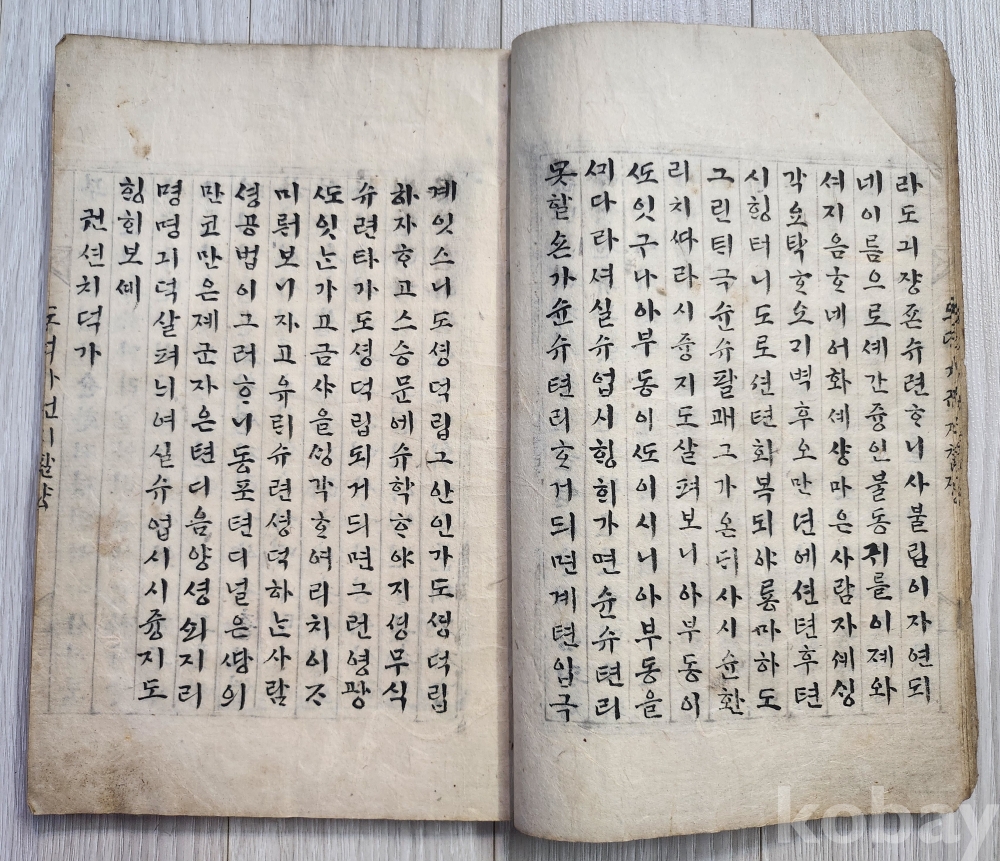 라도긔쟝죤슈련ᄒᆞ니사불립이자연되
네이름으로셰간즁인불동귀를이졔와
셔지음ᄒᆞ네어화셰샹마은사람자셰싱
각ᄋᆞ탁ᄒᆞ오ᄀᆡ벽후오만년에션텬후텬
시힝터니도로션텬회복되야룡마하도
그린틱극슌슈팔괘그가온ᄃᆡ사시슌환
리치ᄯᅡ라시즁지도살펴보니아부동이
ᄯᅩ잇구나아부동이ᄯᅩ이시니아부동을
ᄭᆡ다라셔실슈업시힝희가면슌슈텬리
못할손가슌슈텬리ᄒᆞ거듸면계텬입극
계잇스니도셩덕립그안인가도셩덕립
하자ᄒᆞ고스승문에슈학ᄒᆞ야지셩무식
슈련타가도셩덕립되거듸면그런영광
ᄯᅩ잇ᄂᆞᆫ가고금사을싱각ᄒᆞ여리치이ᄌᆞ
미뤄보니자고유릭슈련셩덕하ᄂᆞᆫ사람
셩공법이그러ᄒᆞ니동포텬디널은ᄯᅡᆼ의
만코만은졔군자은텬디음양셩쇠지리
명명긔덕살펴늬여실슈업시시즁지도
힝희보셰
권션치덕가
kobay